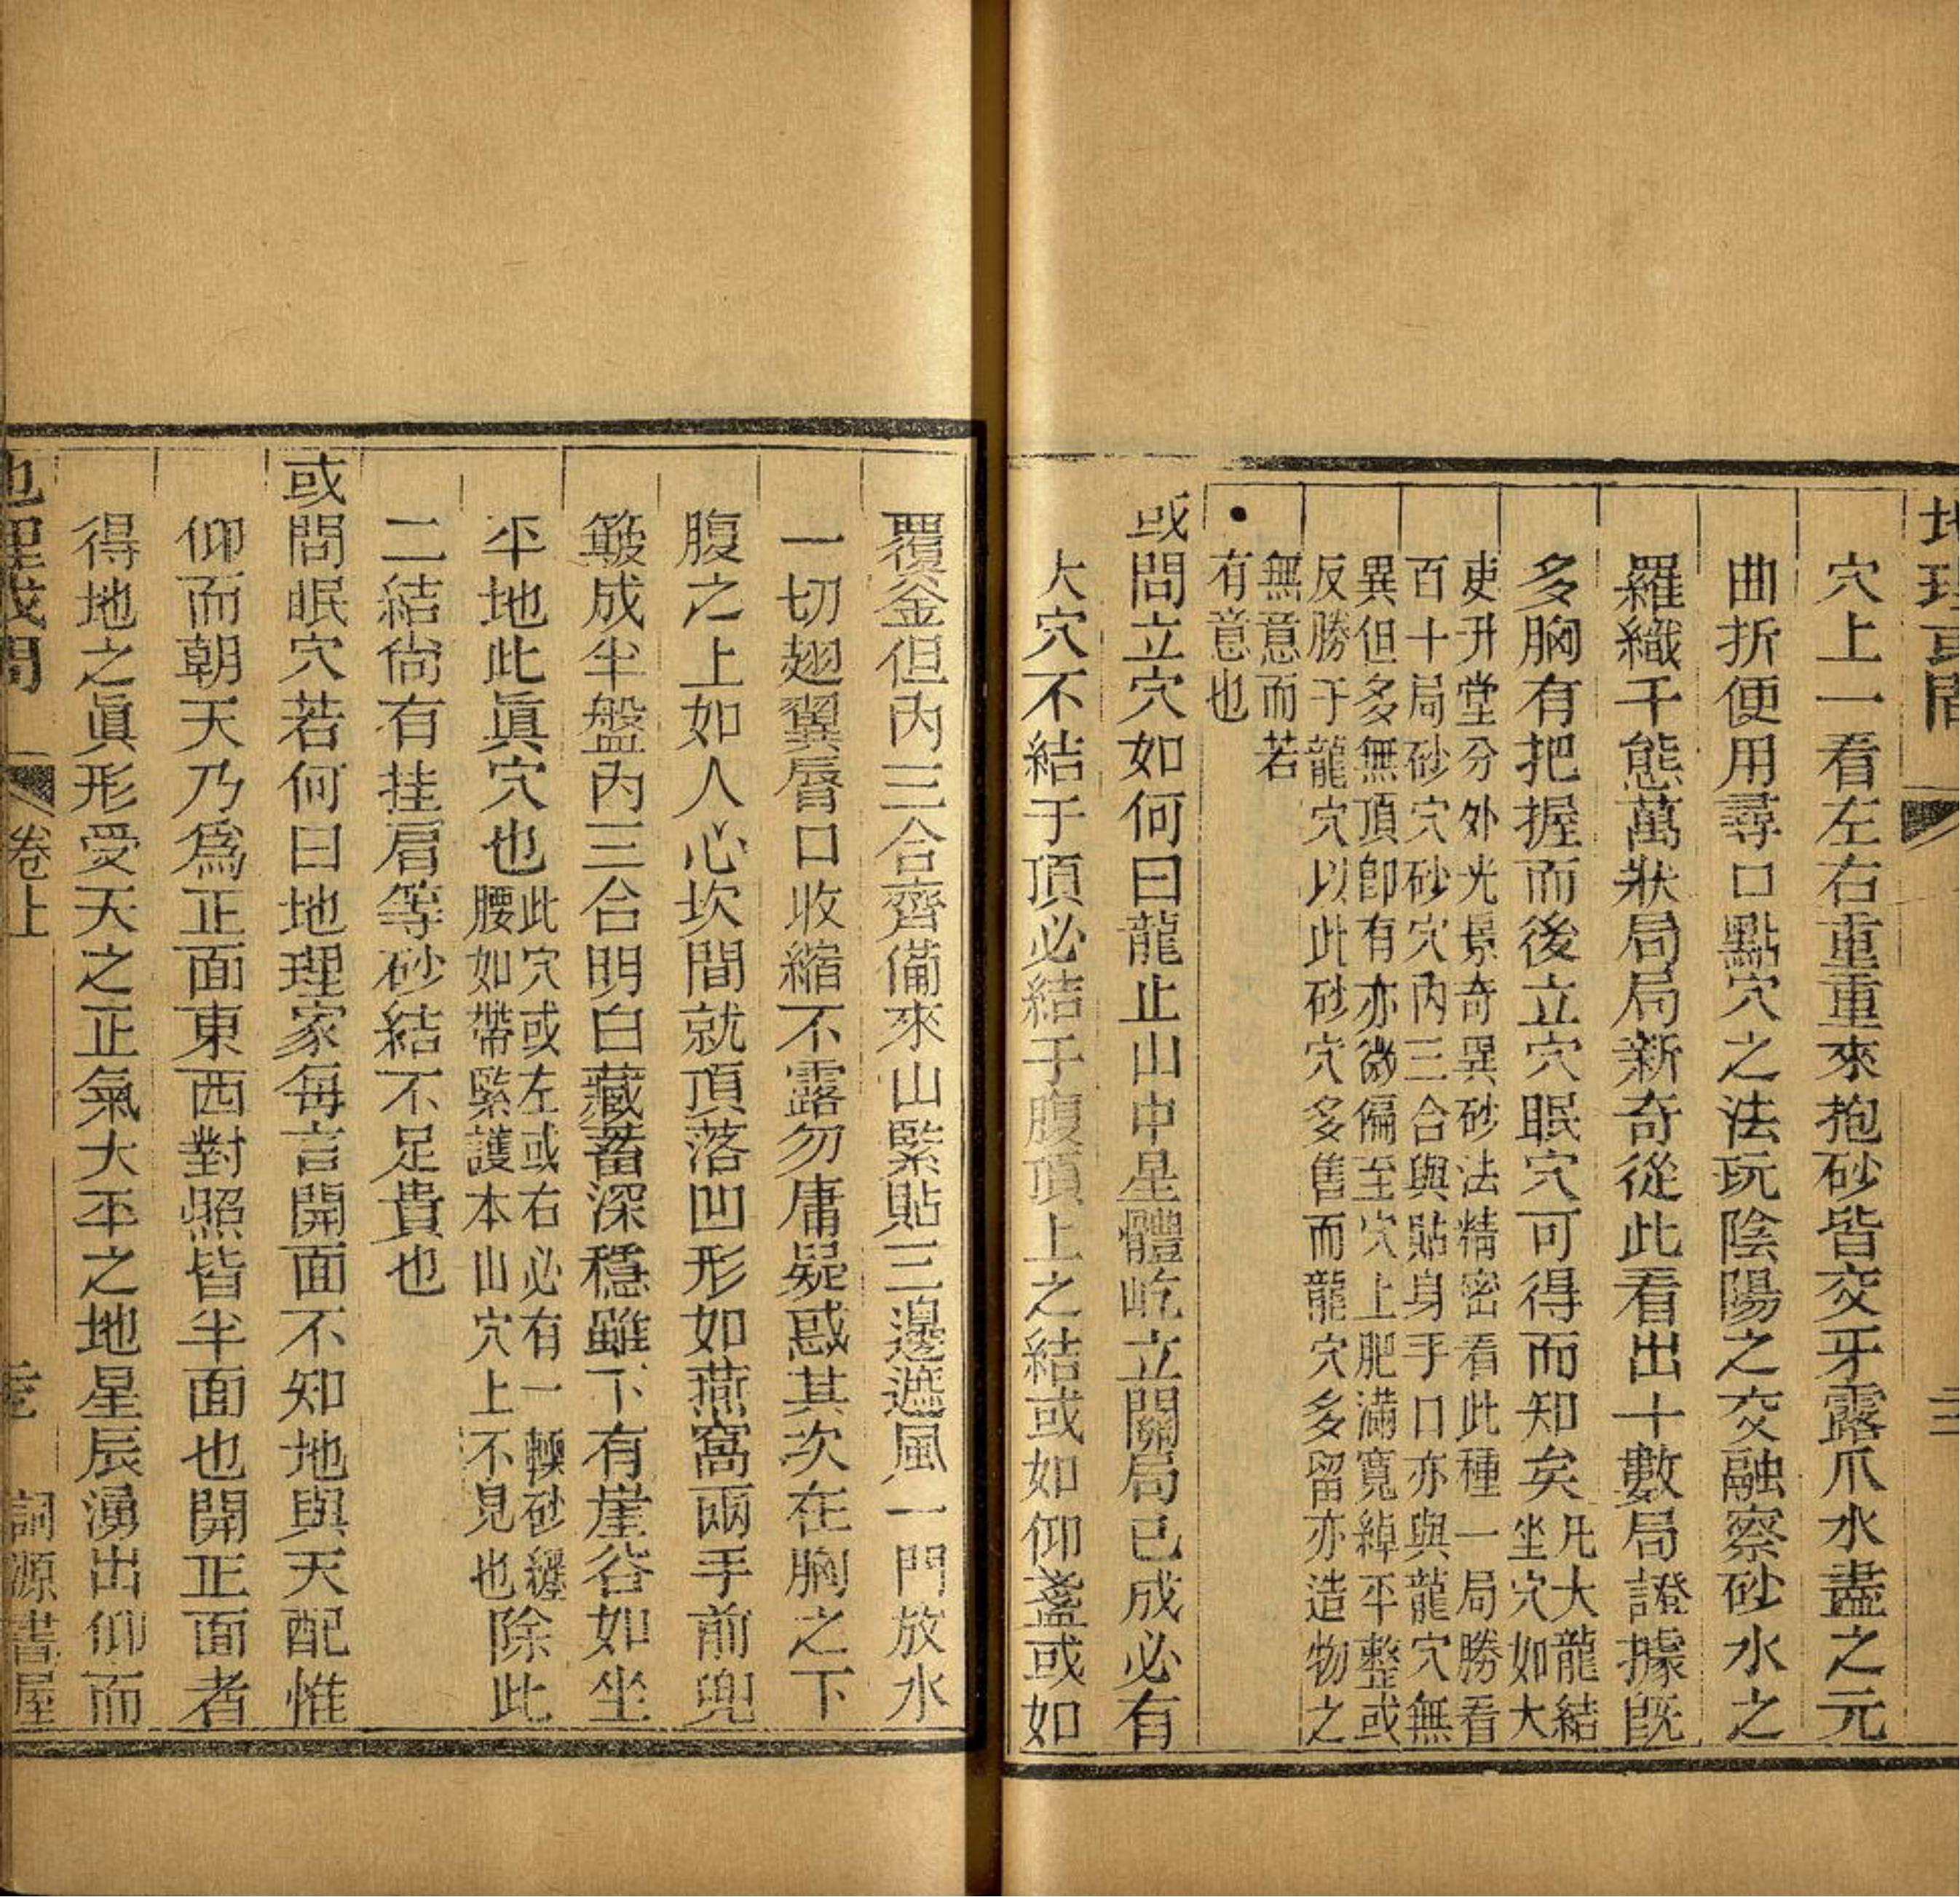 地理或問
穴上一看左右重重來抱砂皆交牙露爪水盡之元
曲折便用尋口點穴之法玩陰陽之交融察砂水之
羅織千態萬狀局局新奇從此看出十數局證據旣
多胸有把握而後立穴眠穴可得而知矣
凡大龍結
坐穴如大
吏升堂分外光景奇異砂法精密看此種一局勝看
百十局砂穴砂穴內三合與貼身手口亦與龍穴無
異但多無頂卽有亦微偏至穴上肥滿寬綽平整或
反勝于龍穴以此砂穴多售而龍穴多留亦造物之
無意而若
有意也
或問立穴如何曰龍止山中星體屹立關局已成必有
大穴不結于頂必結于腹頂上之結或如仰盞或如
覆釜但內三合齊備來山緊貼三邊遮風一門放水
一切翅翼唇口收縮不露勿庸疑惑其次在胸之下
腹之上如人心坎間就頂落凹形如燕窩兩手前兜
簸成半盤內三合明白藏蓄深穩雖下有崖谷如坐
平地此眞穴也
此穴或左或右必有一輭砂纏
腰如帶緊護本山穴上不見也
除此
二結尙有挂肩等砂結不足貴也
或問眠穴若何曰地理家每言開面不知地與天配惟
仰而朝天乃爲正面東西對照皆半面也開正面者
得地之眞形受天之正氣大平之地星辰湧出仰而
地理或問
卷上
詞源書屋